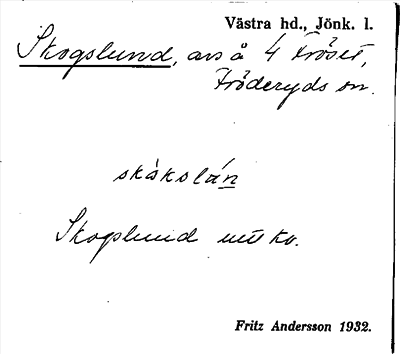 Västra hd., Jönk. l.
Skogslund, avs å 4 Fröset,
Fröderyds sn.
skå̀kslán
Skogslund uttKo.
Fritz Andersson 1932.